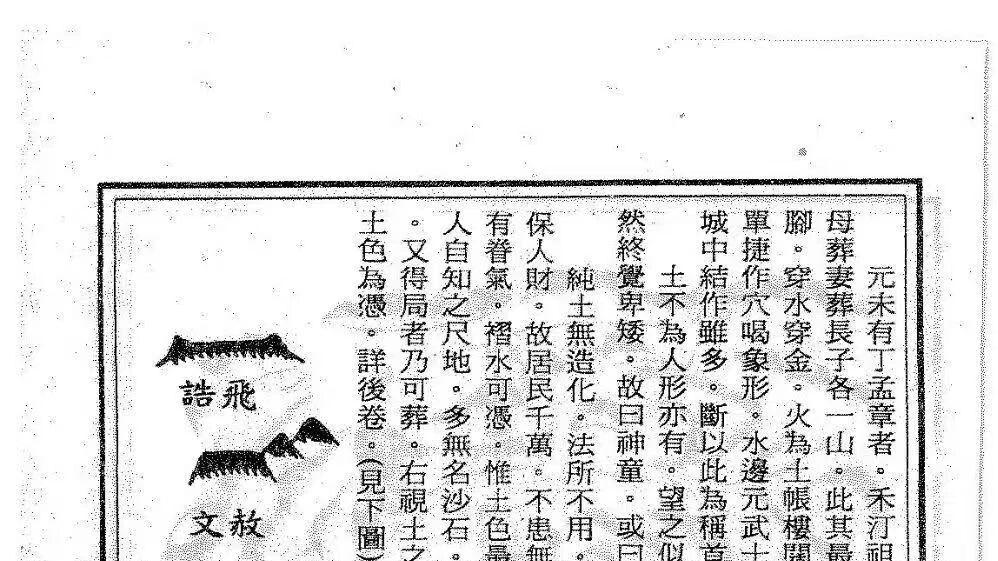 元未有丁孟章者。禾汀祖
母葬妻葬長子各一山。此其最
腳。穿水穿金。火為土帳樓閣
單捷作穴喝象形。水邊元武士
城中結作雖多。斷以此為稱首
土不為人形亦有。望之似
然終覺卑矮。故曰神童。或曰
純土無造化。法所不用。
保人財。故居民千萬。不患無
有眷氣。褶水可憑。惟土色最
人自知之尺地。多無名沙石。
。又得局者乃可葬。右視土之
土色為憑。詳後卷。(見下圖)
飛誥
赦文